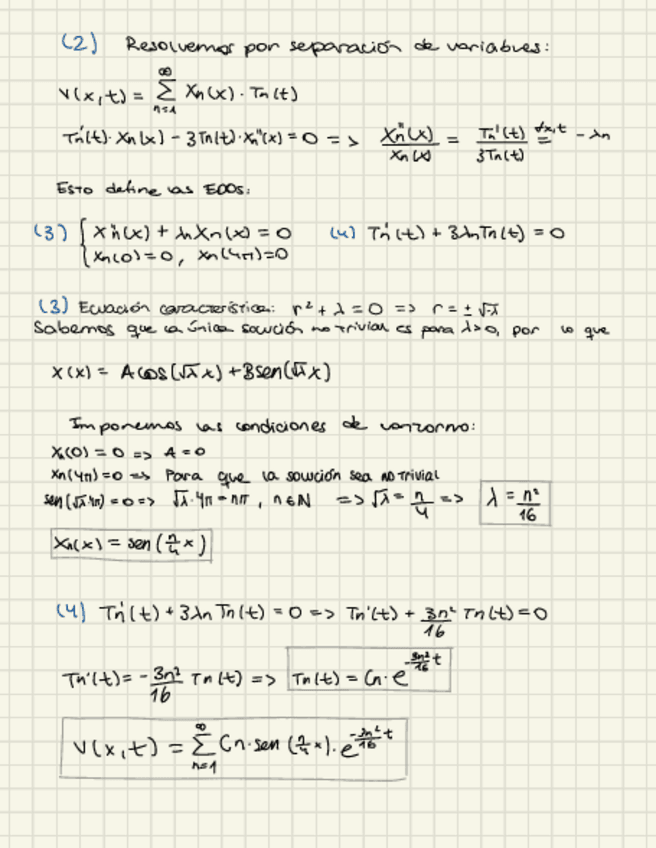 (2) Resolvemos por separación de variables:
V(x,t) = ∞ Σ n=1 Xn(x) · Tn(t)
Tn'(t) · Xn(x) - 3Tn(t) · Xn''(x) = 0 => Xn''(x) / Xn(x) = Tn'(t) / 3Tn(t) ∀x,t = - λn
Esto define las EDOs:
(3) { Xn''(x) + λnXn(x) = 0 (4) Tn'(t) + 3λnTn(t) = 0
Xn(0) = 0, Xn(4π)=0
(3) Ecuación característica: r² + λ = 0 => r = ± √-λ
Sabemos que la única solución no trivial es para λ>0, por lo que
X(x) = A cos(√λ x) + B sen(√λ x)
Imponemos las condiciones de contorno:
Xn(0) = 0 => A = 0
Xn(4π) = 0 => Para que la solución sea no trivial
sen(√λ 4π) = 0 => √λ · 4π = nπ, n ∈ N => √λ = n/4 => λ = n²/16
Xn(x) = sen(n/4 x)
(4) Tn'(t) + 3λn Tn(t) = 0 => Tn'(t) + 3n²/16 Tn(t) = 0
Tn'(t) = -3n²/16 Tn(t) => Tn(t) = Cn · e^(-3n²/16 t)
V(x,t) = ∞ Σ n=1 Cn · sen(n/4 x) · e^(-3n²/16 t)